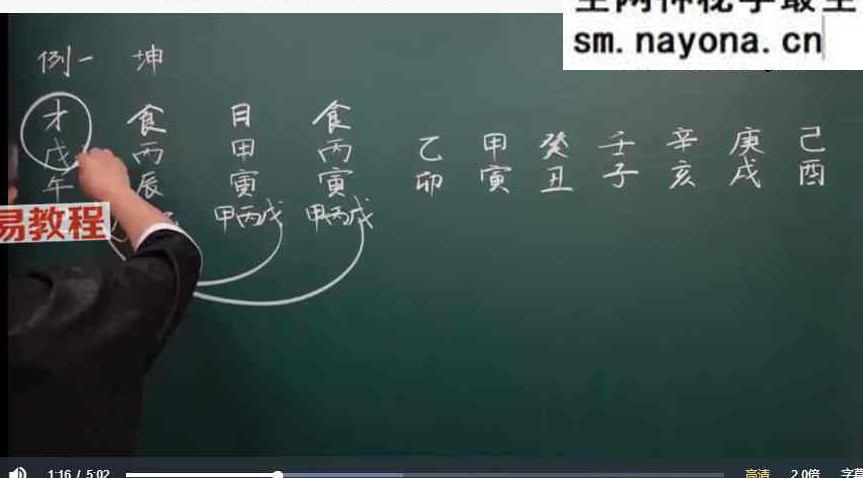 sm.nayona.cn
例一 坤
才 食 日 食
戊 丙 甲 丙 乙 甲 癸 壬 辛 庚 己
午 辰 寅 寅 卯 寅 丑 子 亥 戌 酉
甲丙戊 甲丙戊
易教程
1:16 / 5:02 高清 2.0倍 字幕